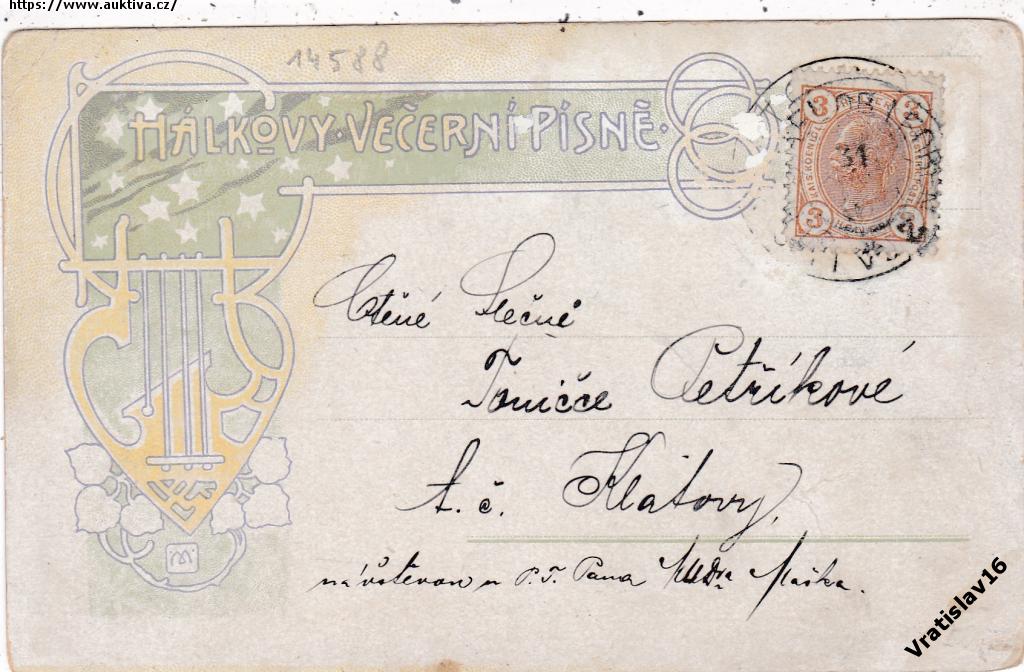 https://www.auktiva.cz/
14588
HÁLKOVY·VEČERNÍ PÍSNĚ·
3 3
31
3
Ctěné Slečně
Toničce Petříkové
t. č. Klatovy,
návštěvou u P. T. Pana MUDra Maška.
M
Vratislav16